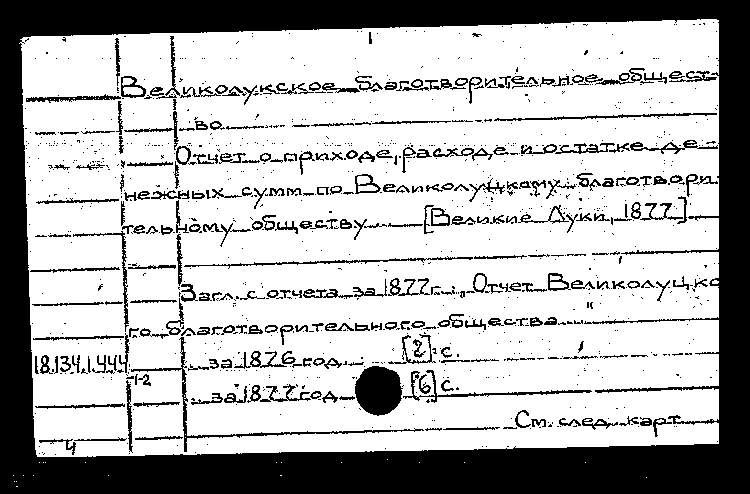 Великолукское благотворительное общест-
во
Отчет о приходе, расходе и остатке де-
нежных сумм по Великолуцкому благотвори-
тельному обществу... [Великие Луки, 1877]
Загл. с отчета за 1877г.: „Отчет Великолуцко
го благотворительного общества..."
18.134.1.444 ...за 1876 год... [2] с.
1-2 ...за 1877 год [6] с.
См. след. карт.
4